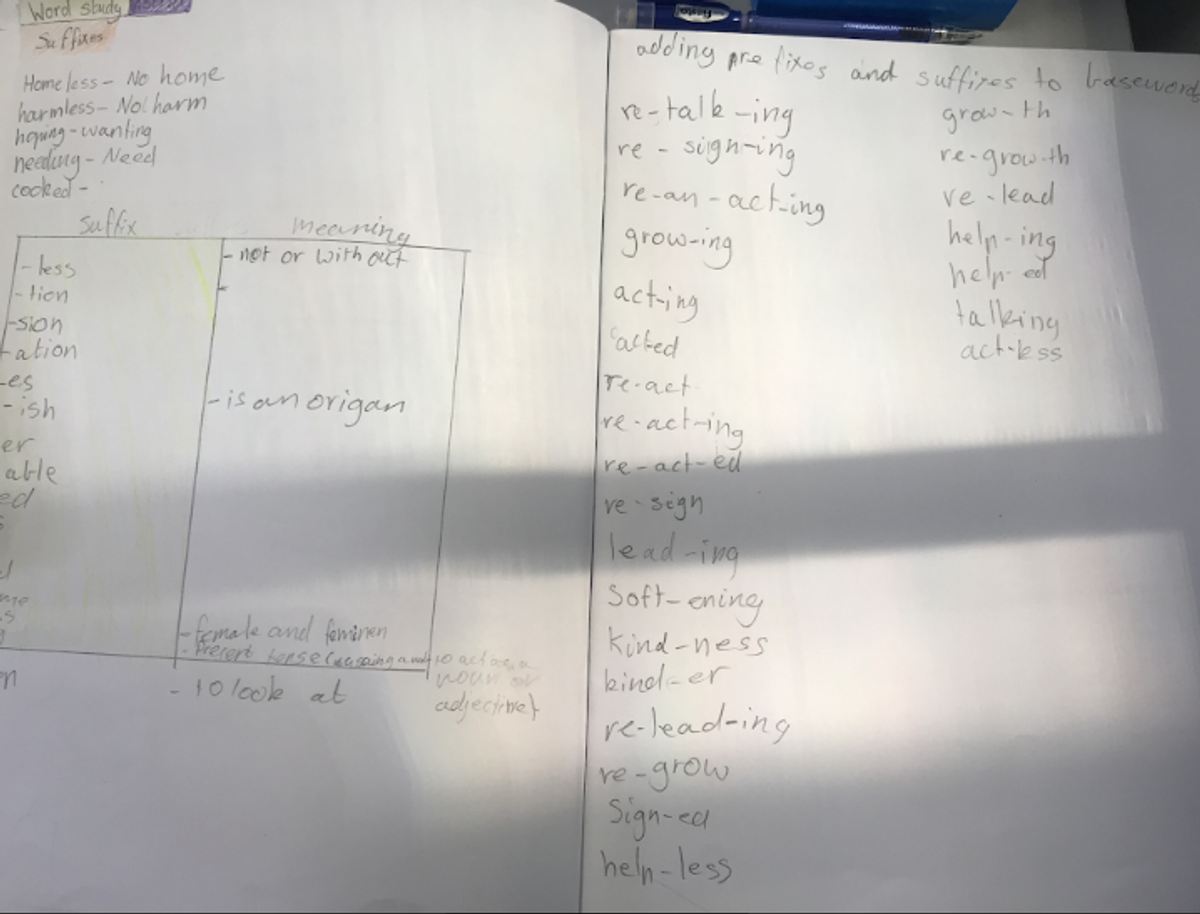 Word study
Suffixes
Homeless - No home
harmless - No harm
hoping - wanting
needing - Need
cooked -
suffix meaning
- less - not or with out
- tion -
-sion
-ation
-es
- ish - is an origan
er
able
ed
s
me
- female and feminen
- Present tense to act as a
noun or
- to look at adjective)
adding prefixes and suffixes to basewords
re-talk-ing
re-sign-ing
re-an-act-ing
grow-ing
act-ing
acted
re-act
re-act-ing
re-act-ed
re-sign
lead-ing
Soft-ening
kind-ness
kind-er
re-lead-ing
re-grow
Sign-ed
help-less
grow-th
re-grow-th
re-lead
help-ing
help-ed
talking
act-less